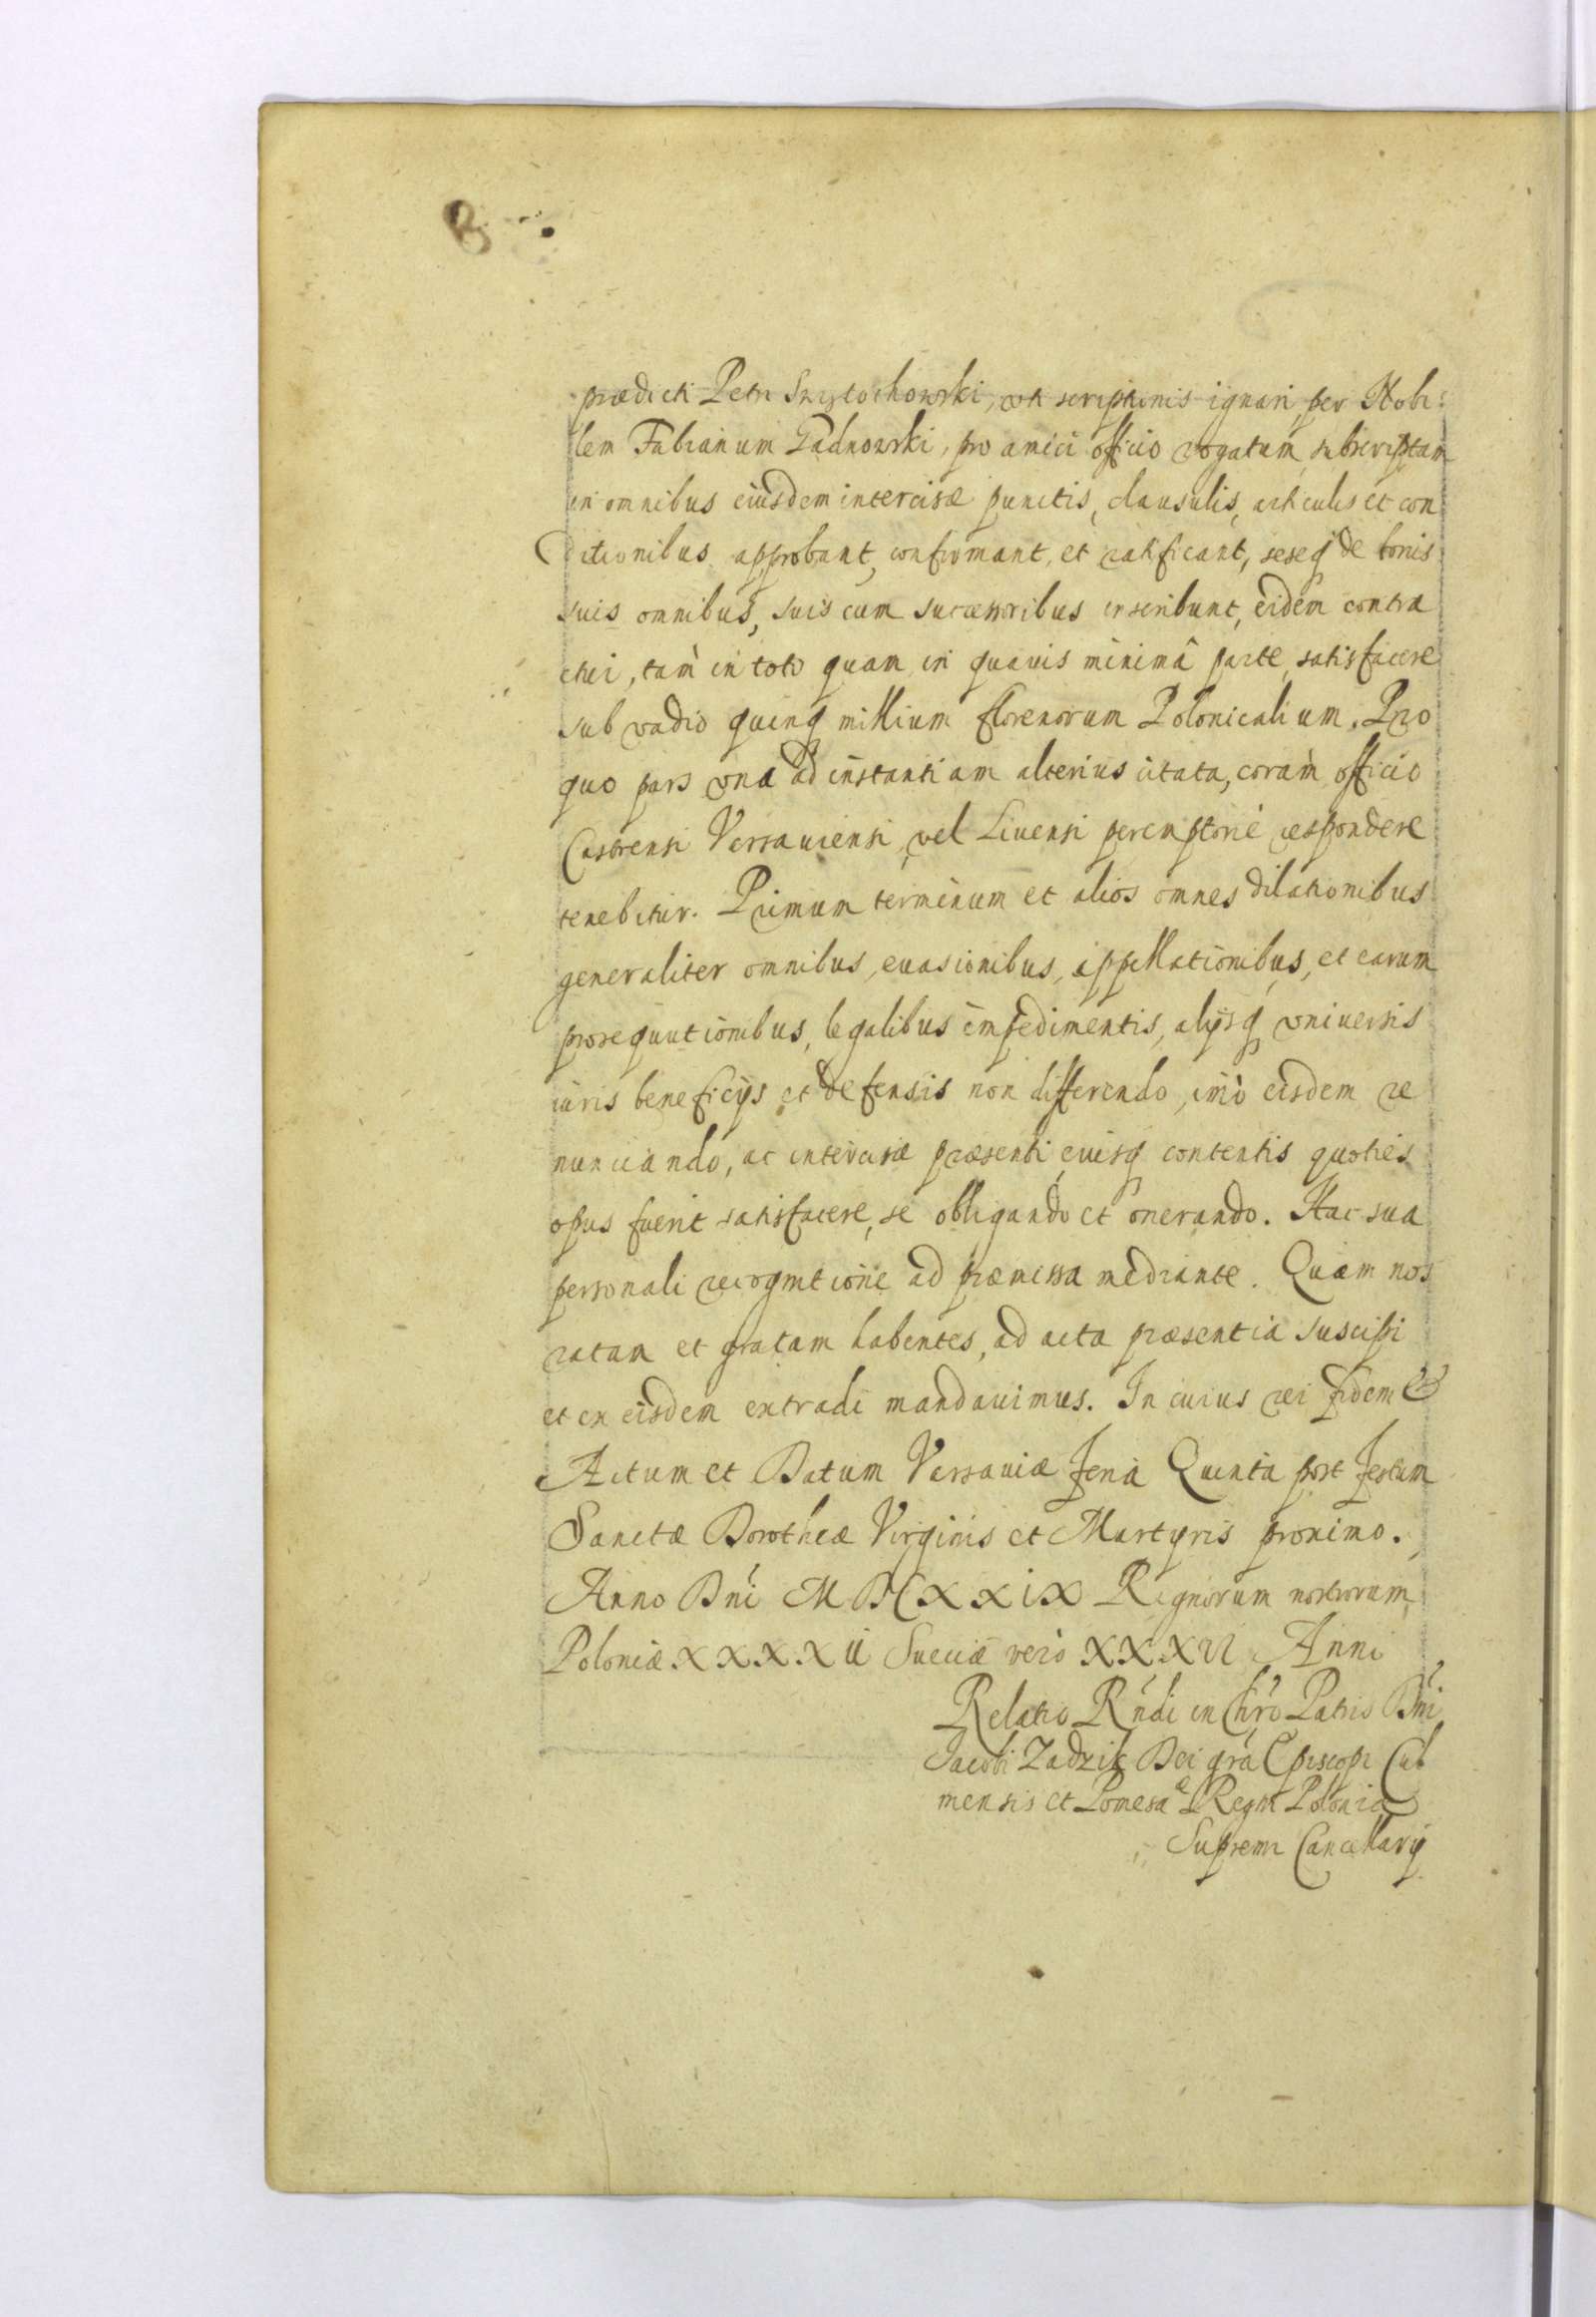 B
prædicti Petri Szystochowski, vti scriptionis ignari, per Nobi:
lem Fabianum Gadnowski, pro amici officio rogatum, subscriptam
in omnibus eiusdem intercisæ punctis, clausulis, articulis et con
ditionibus approbant, confirmant, et ratificant, seseq de bonis
suis omnibus, suis cum sucæssoribus inscribunt, eidem contra
ctui, tam in toto quam in quauis minimâ parte, satisfacere
sub vadio quinq millium florenorum Polonicalium. Pro
quo pars vna ad instantiam alterius citata, coram officio
Castrensi Varsauiensi, vel Liuensi peremptorie respondere
tenebitur. Primum terminum et alios omnes dilationibus
generaliter omnibus, euasionibus, appellationibus, et earum
prosequutionibus, legalibus impedimentis, alijsq vniuersis
iuris beneficijs et defensis non differendo, imò eisdem re
nunciando, ac intercisæ præsenti, eiusq contentis quoties
opus fuerit satisfacere, se obligando et onerando. Hac sua
personali recognitione ad præmissa mediante. Quam nos
ratam et gratam habentes, ad acta præsentia suscipi
et ex eisdem extradi mandauimus. In cuius rei fidem &
Actum et Datum Varsauiæ Feria Quinta post Festum
Sanctæ Dorotheæ Virginis et Martyris proximo.
Anno Dni MDCXXIX Regnorum nostrorum
Poloniæ XXXXII Sueciæ verò XXXVI Anni
Relatio Rndi in Chro Patris Dni
Iacobi Zadzik Dei gra Episcopi Cul
mensis et Pomesa^e Regni Poloniæ
Supremi Cancellarij